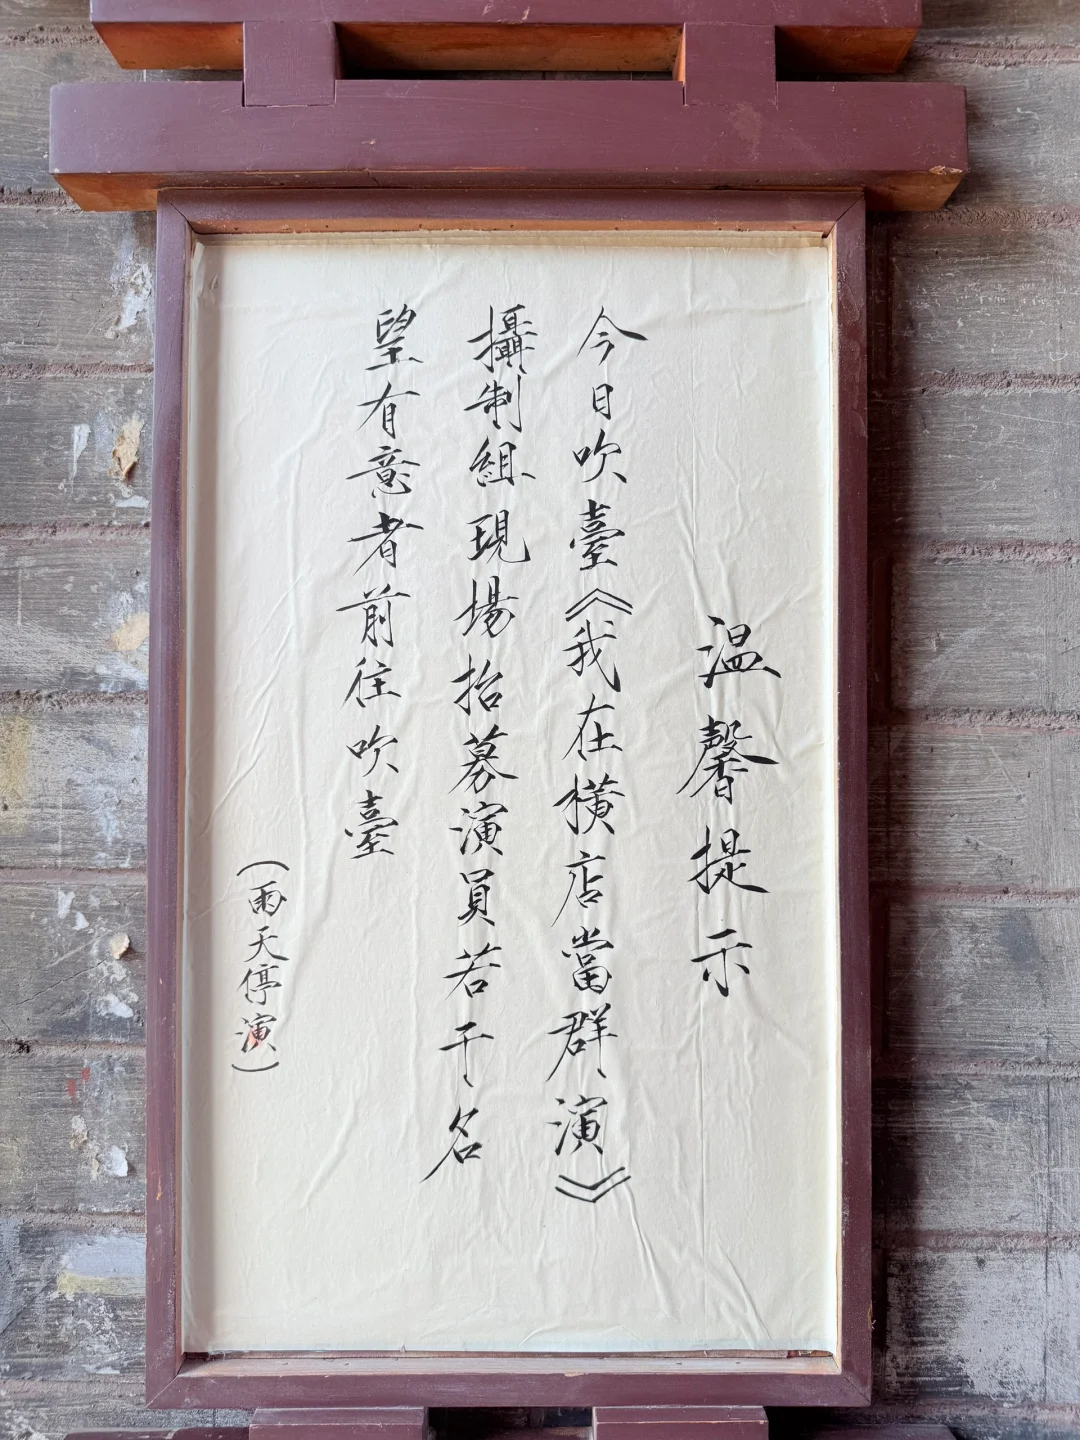 温馨提示
今日吹臺《我在橫店當群演》
攝制組現場招募演員若干名
望有意者前往吹臺
(雨天停演)